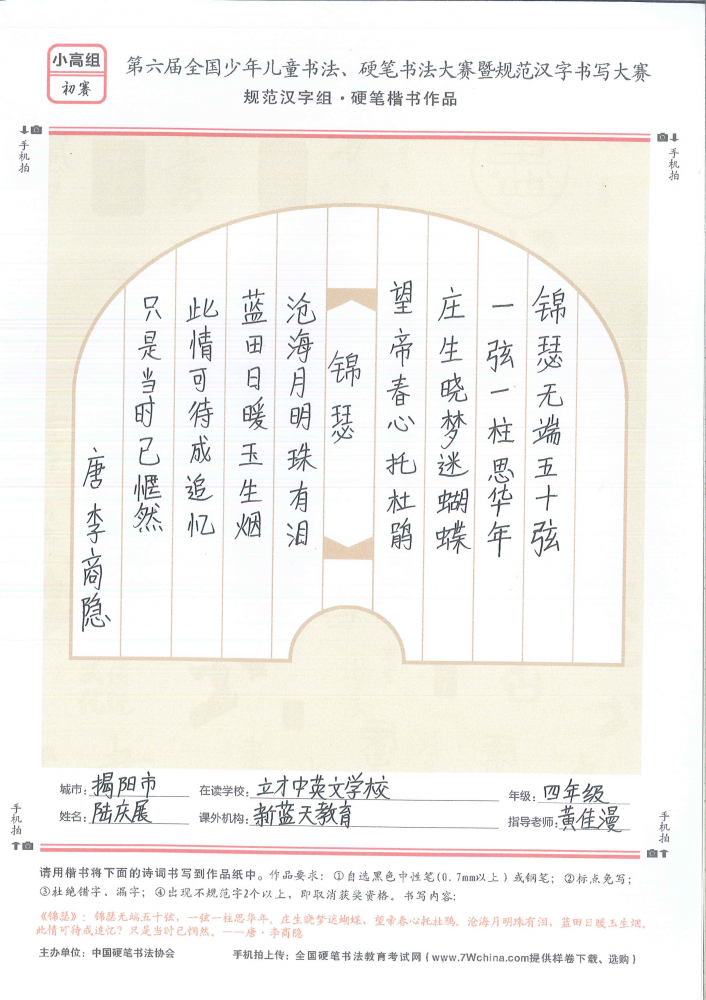 小高组
初赛
第六届全国少年儿童书法、硬笔书法大赛暨规范汉字书写大赛
规范汉字组·硬笔楷书作品
手机拍
手机拍
锦瑟无端五十弦
一弦一柱思华年
庄生晓梦迷蝴蝶
望帝春心托杜鹃
锦瑟
沧海月明珠有泪
蓝田日暖玉生烟
此情可待成追忆
只是当时已惘然
唐李商隐
城市:揭阳市 在读学校:立才中英文学校 年级:四年级
姓名:陆庆展 课外机构:新蓝天教育 指导老师:黄佳漫
手机拍
手机拍
请用楷书将下面的诗词书写到作品纸中。作品要求:①自选黑色中性笔(0.7mm以上)或钢笔;②标点免写;
③杜绝错字、漏字;④出现不规范字2个以上,即取消获奖资格。书写内容:
《锦瑟》:锦瑟无端五十弦,一弦一柱思华年。庄生晓梦迷蝴蝶,望帝春心托杜鹃。沧海月明珠有泪,蓝田日暖玉生烟。
此情可待成追忆?只是当时已惘然。——唐·李商隐
主办单位:中国硬笔书法协会 手机拍上传:全国硬笔书法教育考试网(www.7Wchina.com提供样卷下载、选购)